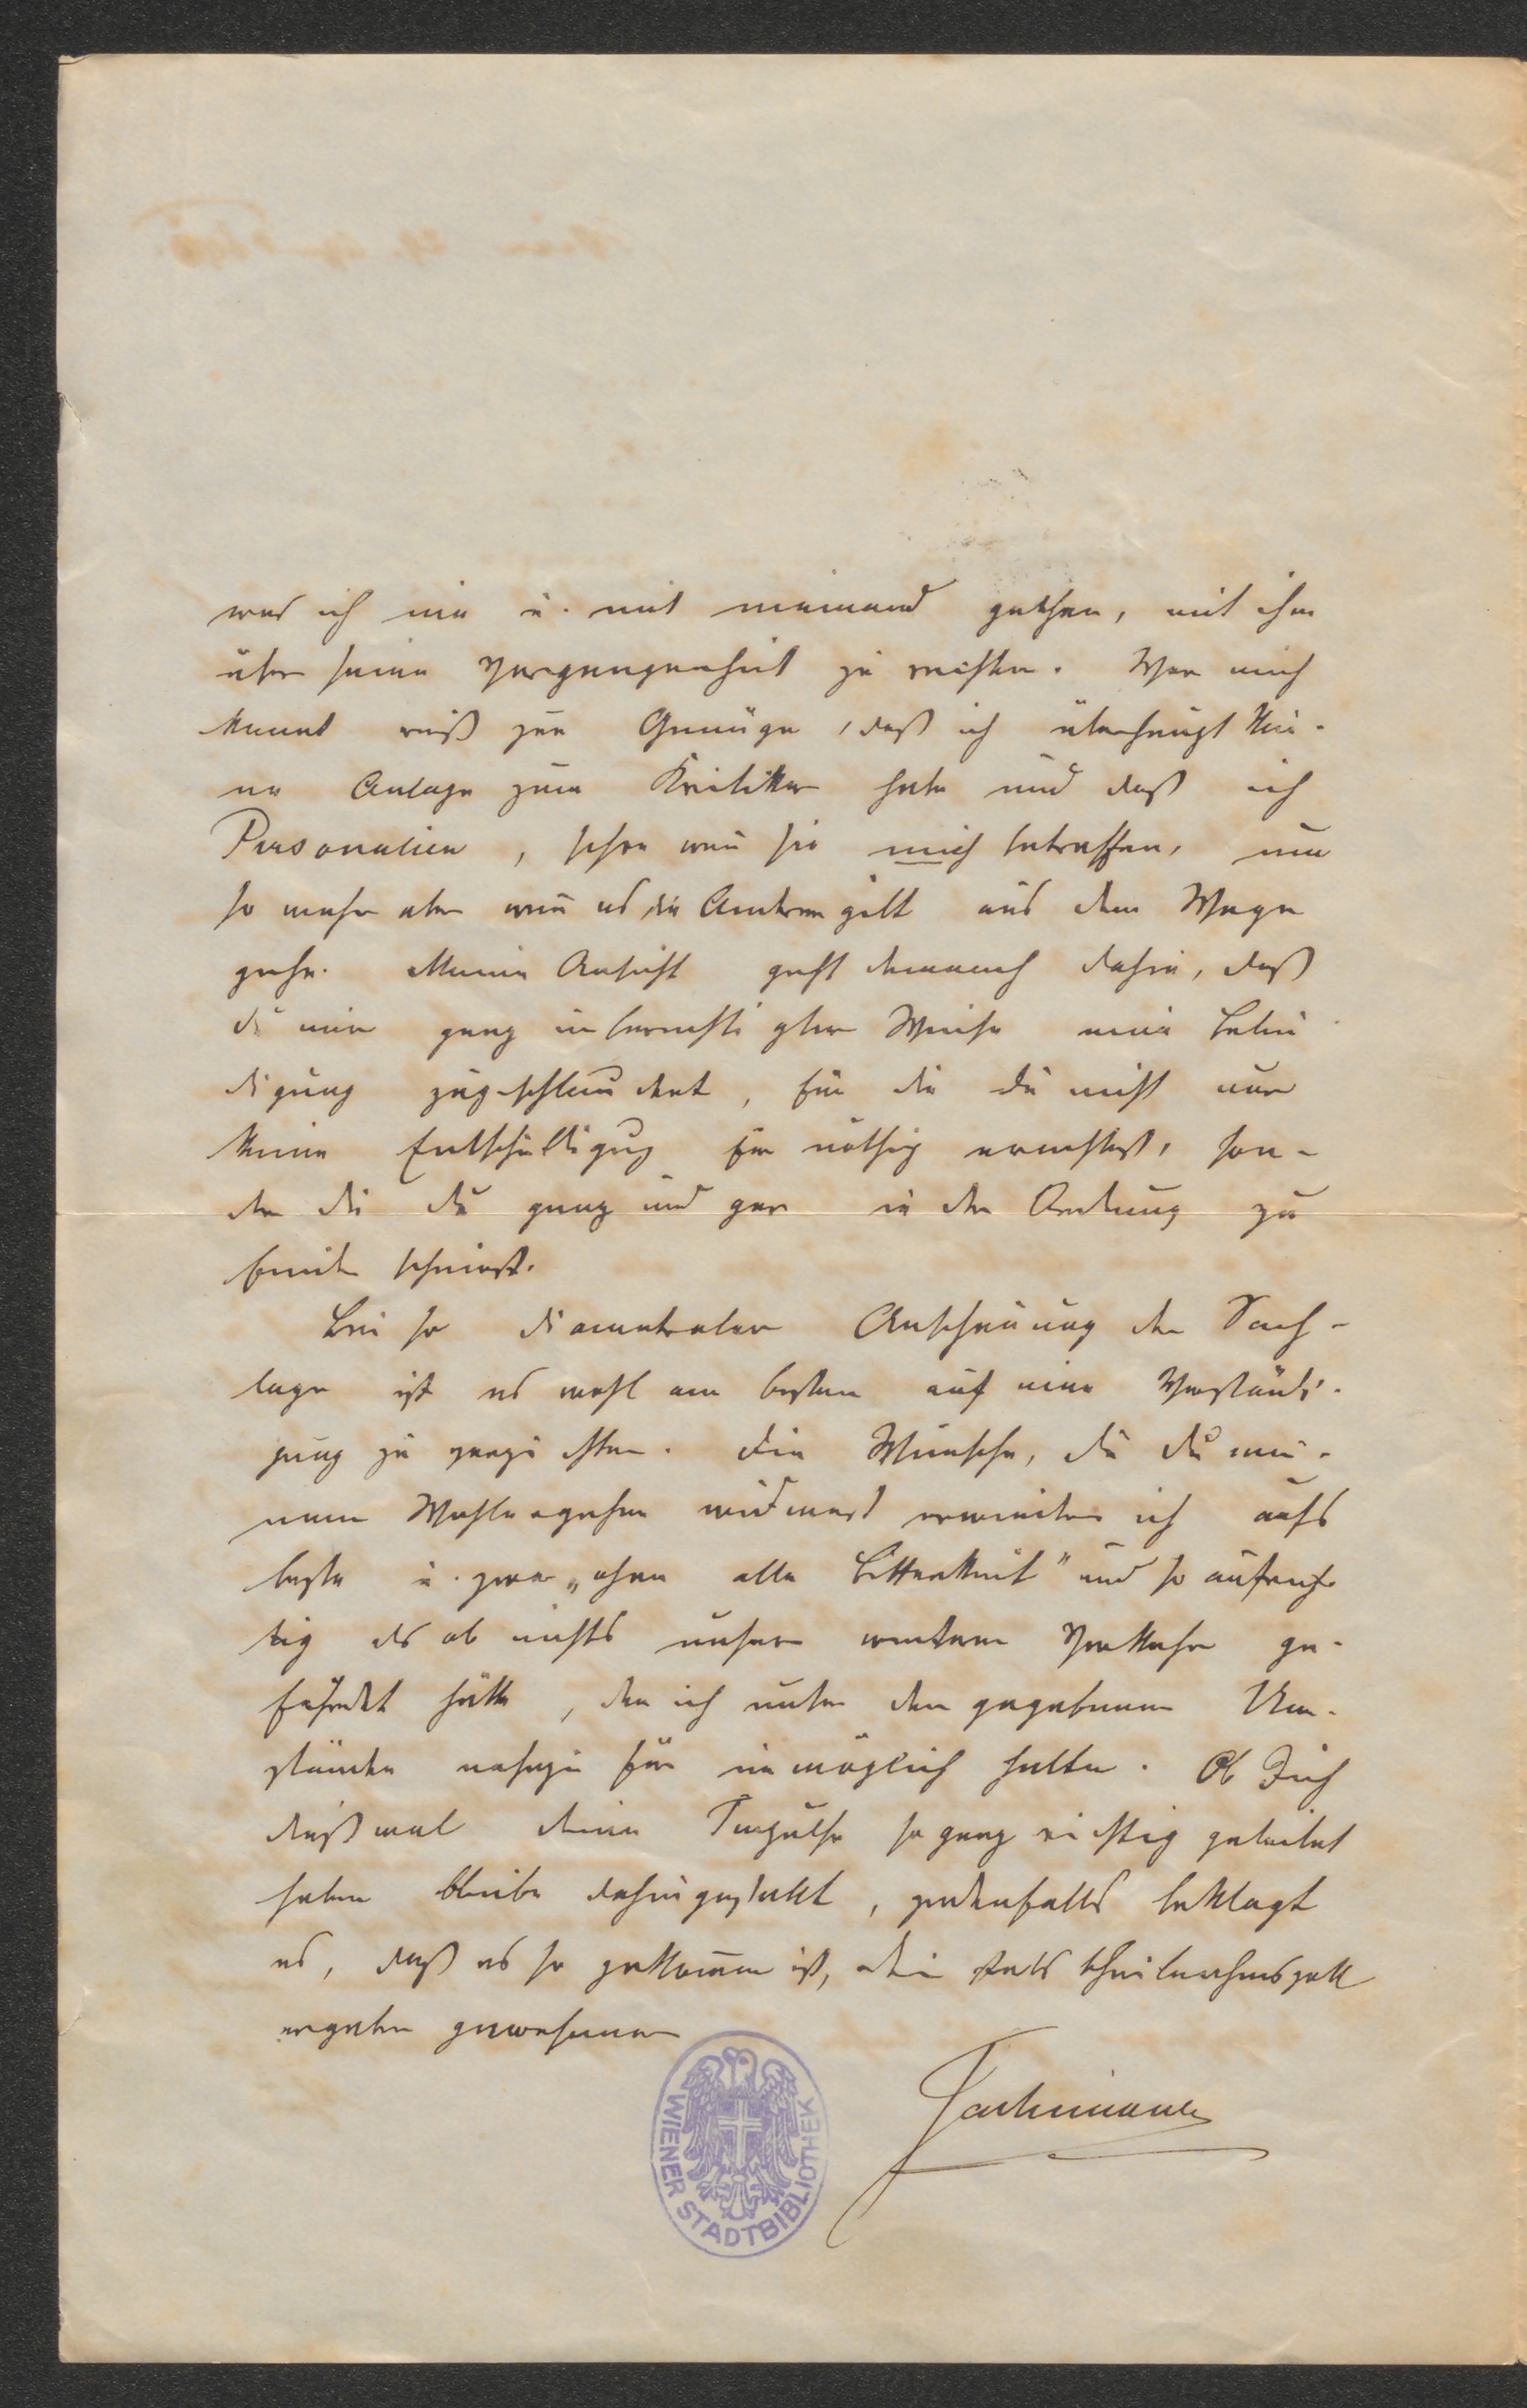 was ich nie u. mit niemand gethan, mit ihm
über seine Vergangenheit zu rechten. Wer mich
kennt weiß zur Genüge, daß ich überhaupt kei-
ne Anlage zum Kritiker habe und daß ich
Personalien, schon wenn sie mich betreffen, um
so mehr aber wenn es die Anderen gilt aus dem Wege
gehe. Meine Ansicht geht demnach dahin, daß
du mir ganz unberechtigter Weise eine Belei
digung zugeschleudert, für die du nicht nur
keine Entschuldigung für nöthig erachtest, son-
dern die du ganz und gar in der Ordnung zu
finden scheinst.
Bei so diametraler Anschauung der Sach-
lage ist es wohl am besten auf eine Verständi-
gung zu verzichten. Die Wünsche, die du mei-
nem Wohlergehen widmest erwiedere ich aufs
beste u. zwar „ohne alle Bitterkeit" und so aufrich
tig als ob nichts unsern weitern Verkehr ge-
fährdet hätte, den ich unter den gegebenen Um-
ständen nahezu für unmöglich halte. Ob Dich
dießmal deine Impulse so ganz richtig geleitet
haben bleibe dahingestellt, jedenfalls beklagt
es, daß es so gekommen ist, dein stets theilnahmsvoll
ergeben gewesener
WIENER STADTBIBLIOTHEK